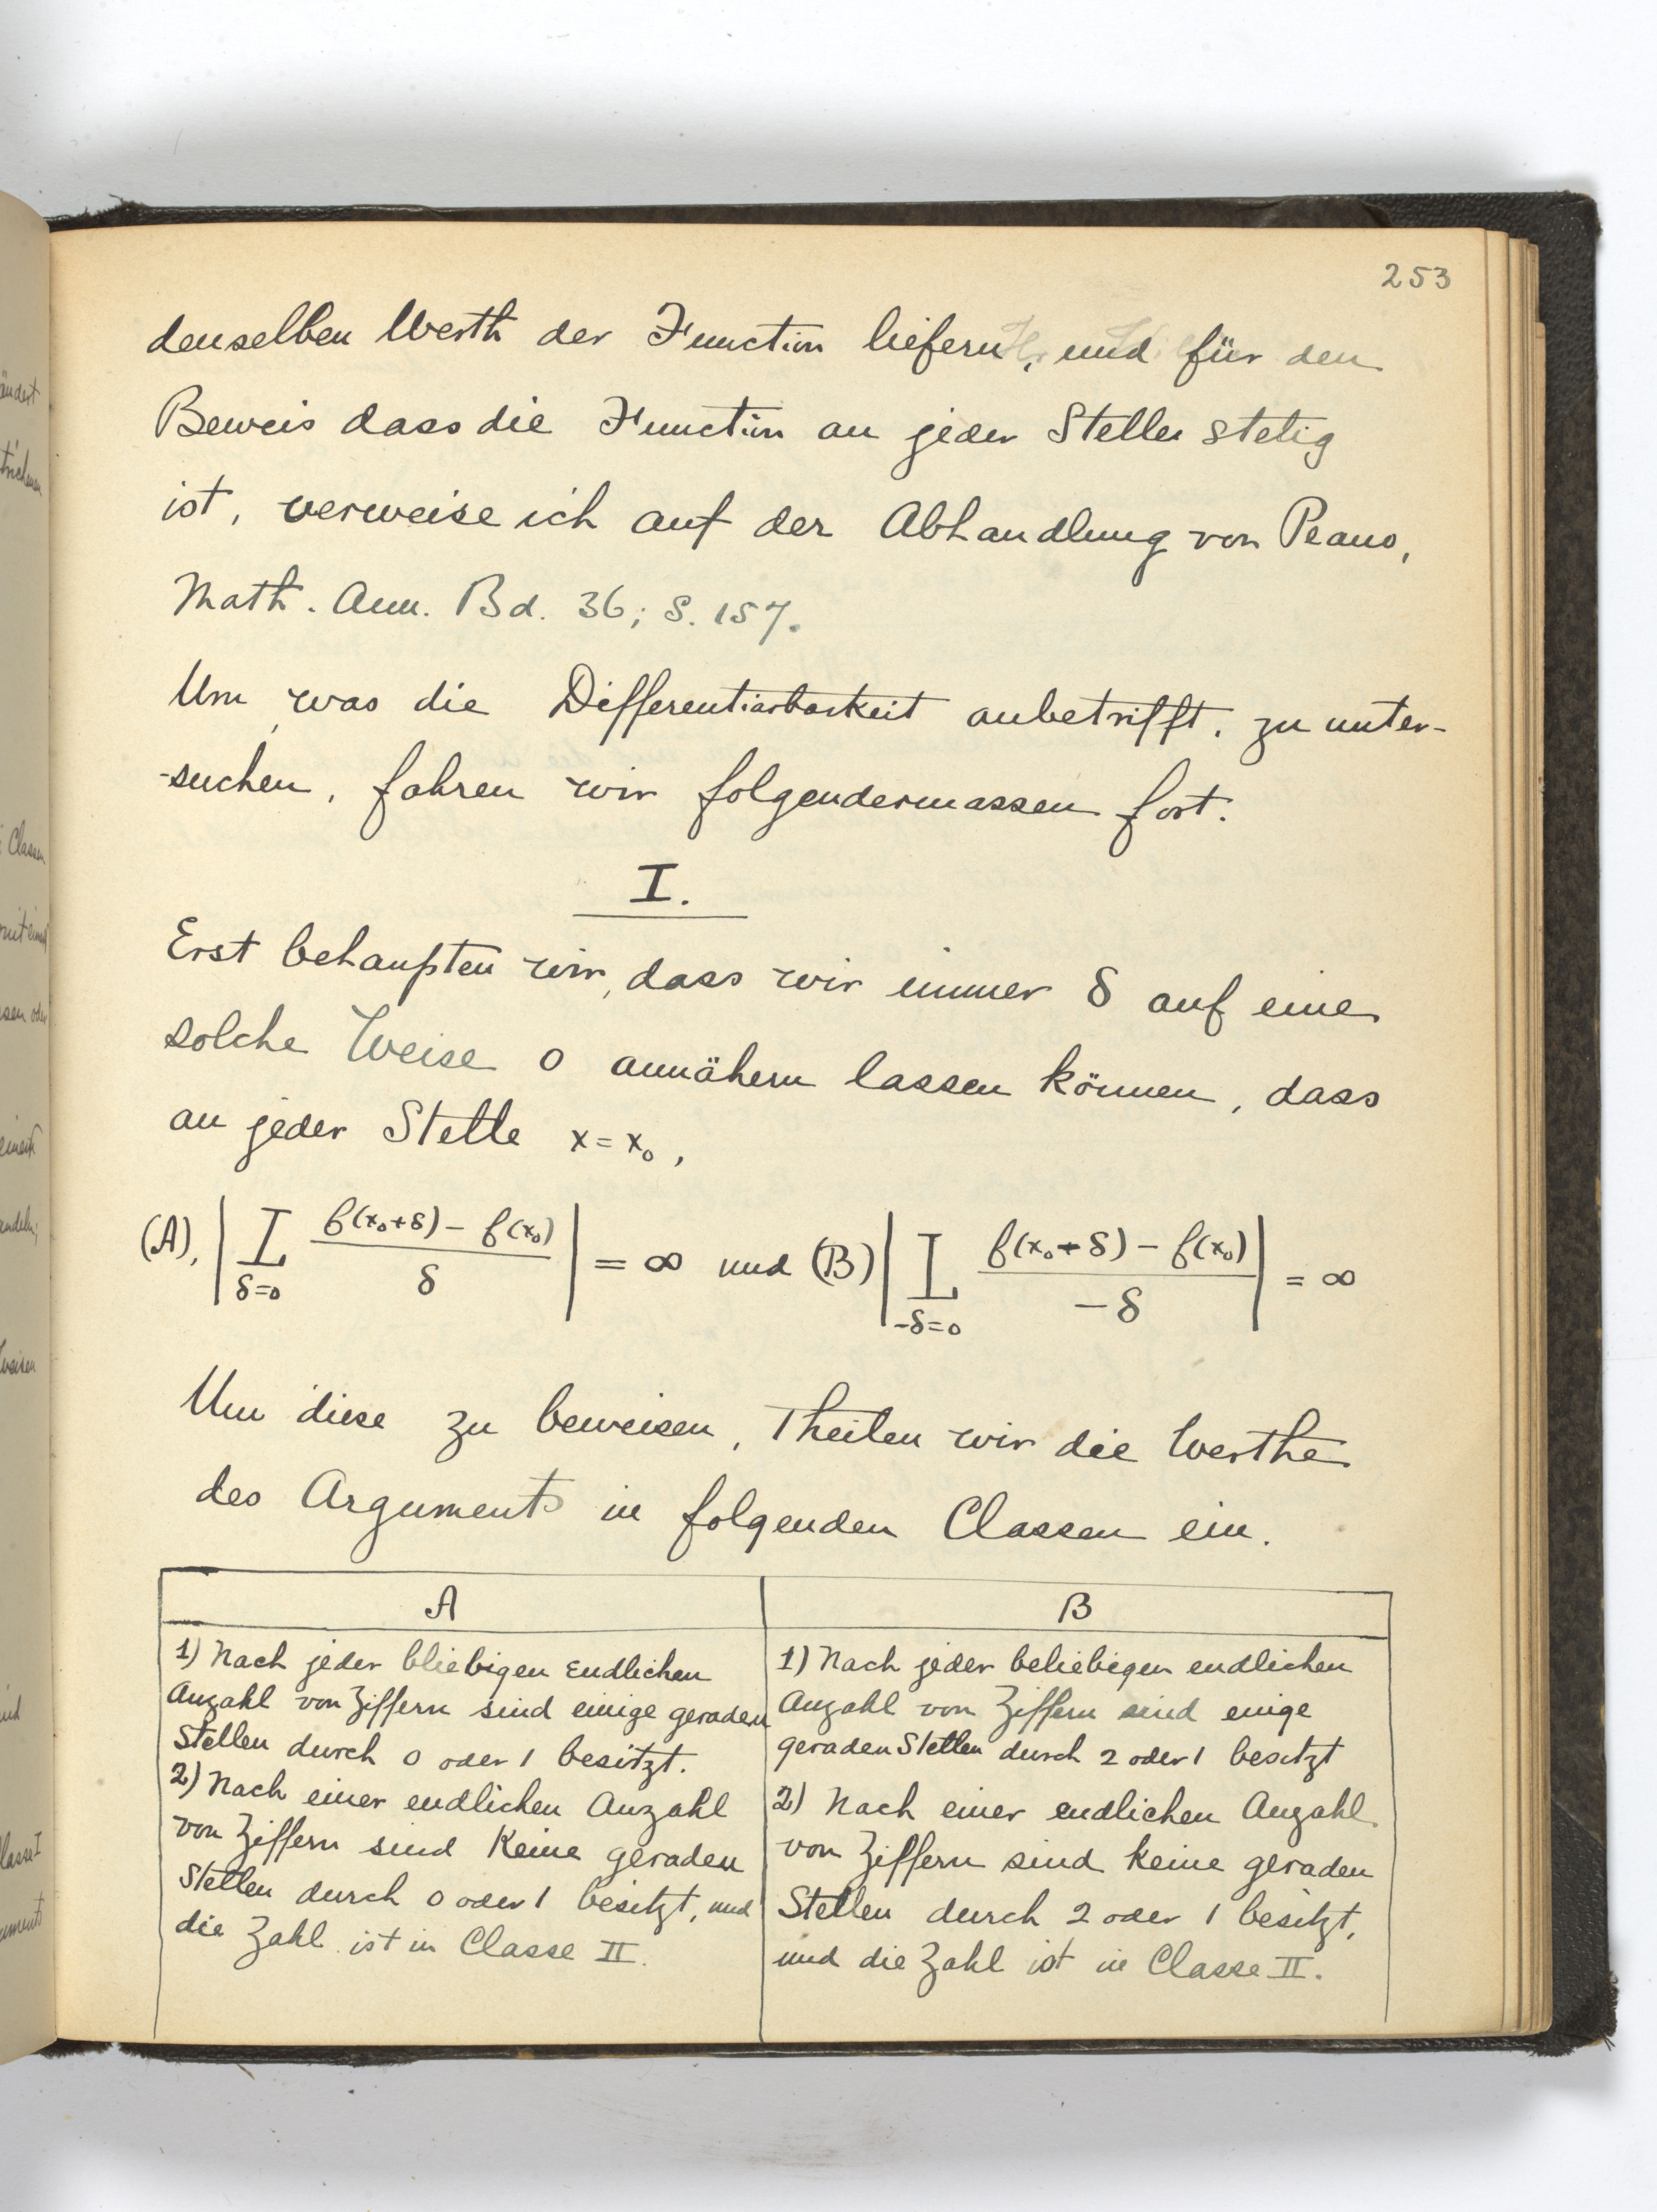 253
denselben Werth der Function liefern, und für den
Beweis dass die Function an jeder Stelle stetig
ist, verweise ich auf der Abhandlung von Peano,
Math. Ann. Bd. 36; S. 157.
Um was die Differentiarbarkeit anbetrifft, zu unter-
-suchen, fahren wir folgendermassen fort.
I.
Erst behaupten wir, dass wir immer δ auf eine
solche Weise 0 annähern lassen können, dass
an jeder Stelle x = x₀,
(A), | L_{δ=0} (f(x₀+δ) − f(x₀)) / δ | = ∞ und (B) | L_{-δ=0} (f(x₀+δ) − f(x₀)) / −δ | = ∞
Um diese zu beweisen, Theilen wir die Werthe
des Arguments in folgenden Classen ein.
A
1) Nach jeder bliebigen Endlichen
Anzahl von Ziffern sind einige geraden
Stellen durch 0 oder 1 besitzt.
2) Nach einer endlichen Anzahl
von Ziffern sind Keine geraden
Stellen durch 0 oder 1 besitzt, und
die Zahl ist in Classe II.
B
1) Nach jeder beliebigen endlichen
Anzahl von Ziffern sind einige
geraden Stellen durch 2 oder 1 besitzt
2) Nach einer endlichen Anzahl
von Ziffern sind keine geraden
Stellen durch 2 oder 1 besitzt,
und die Zahl ist in Classe II.
ändert
Classen
Weisen
Classe I